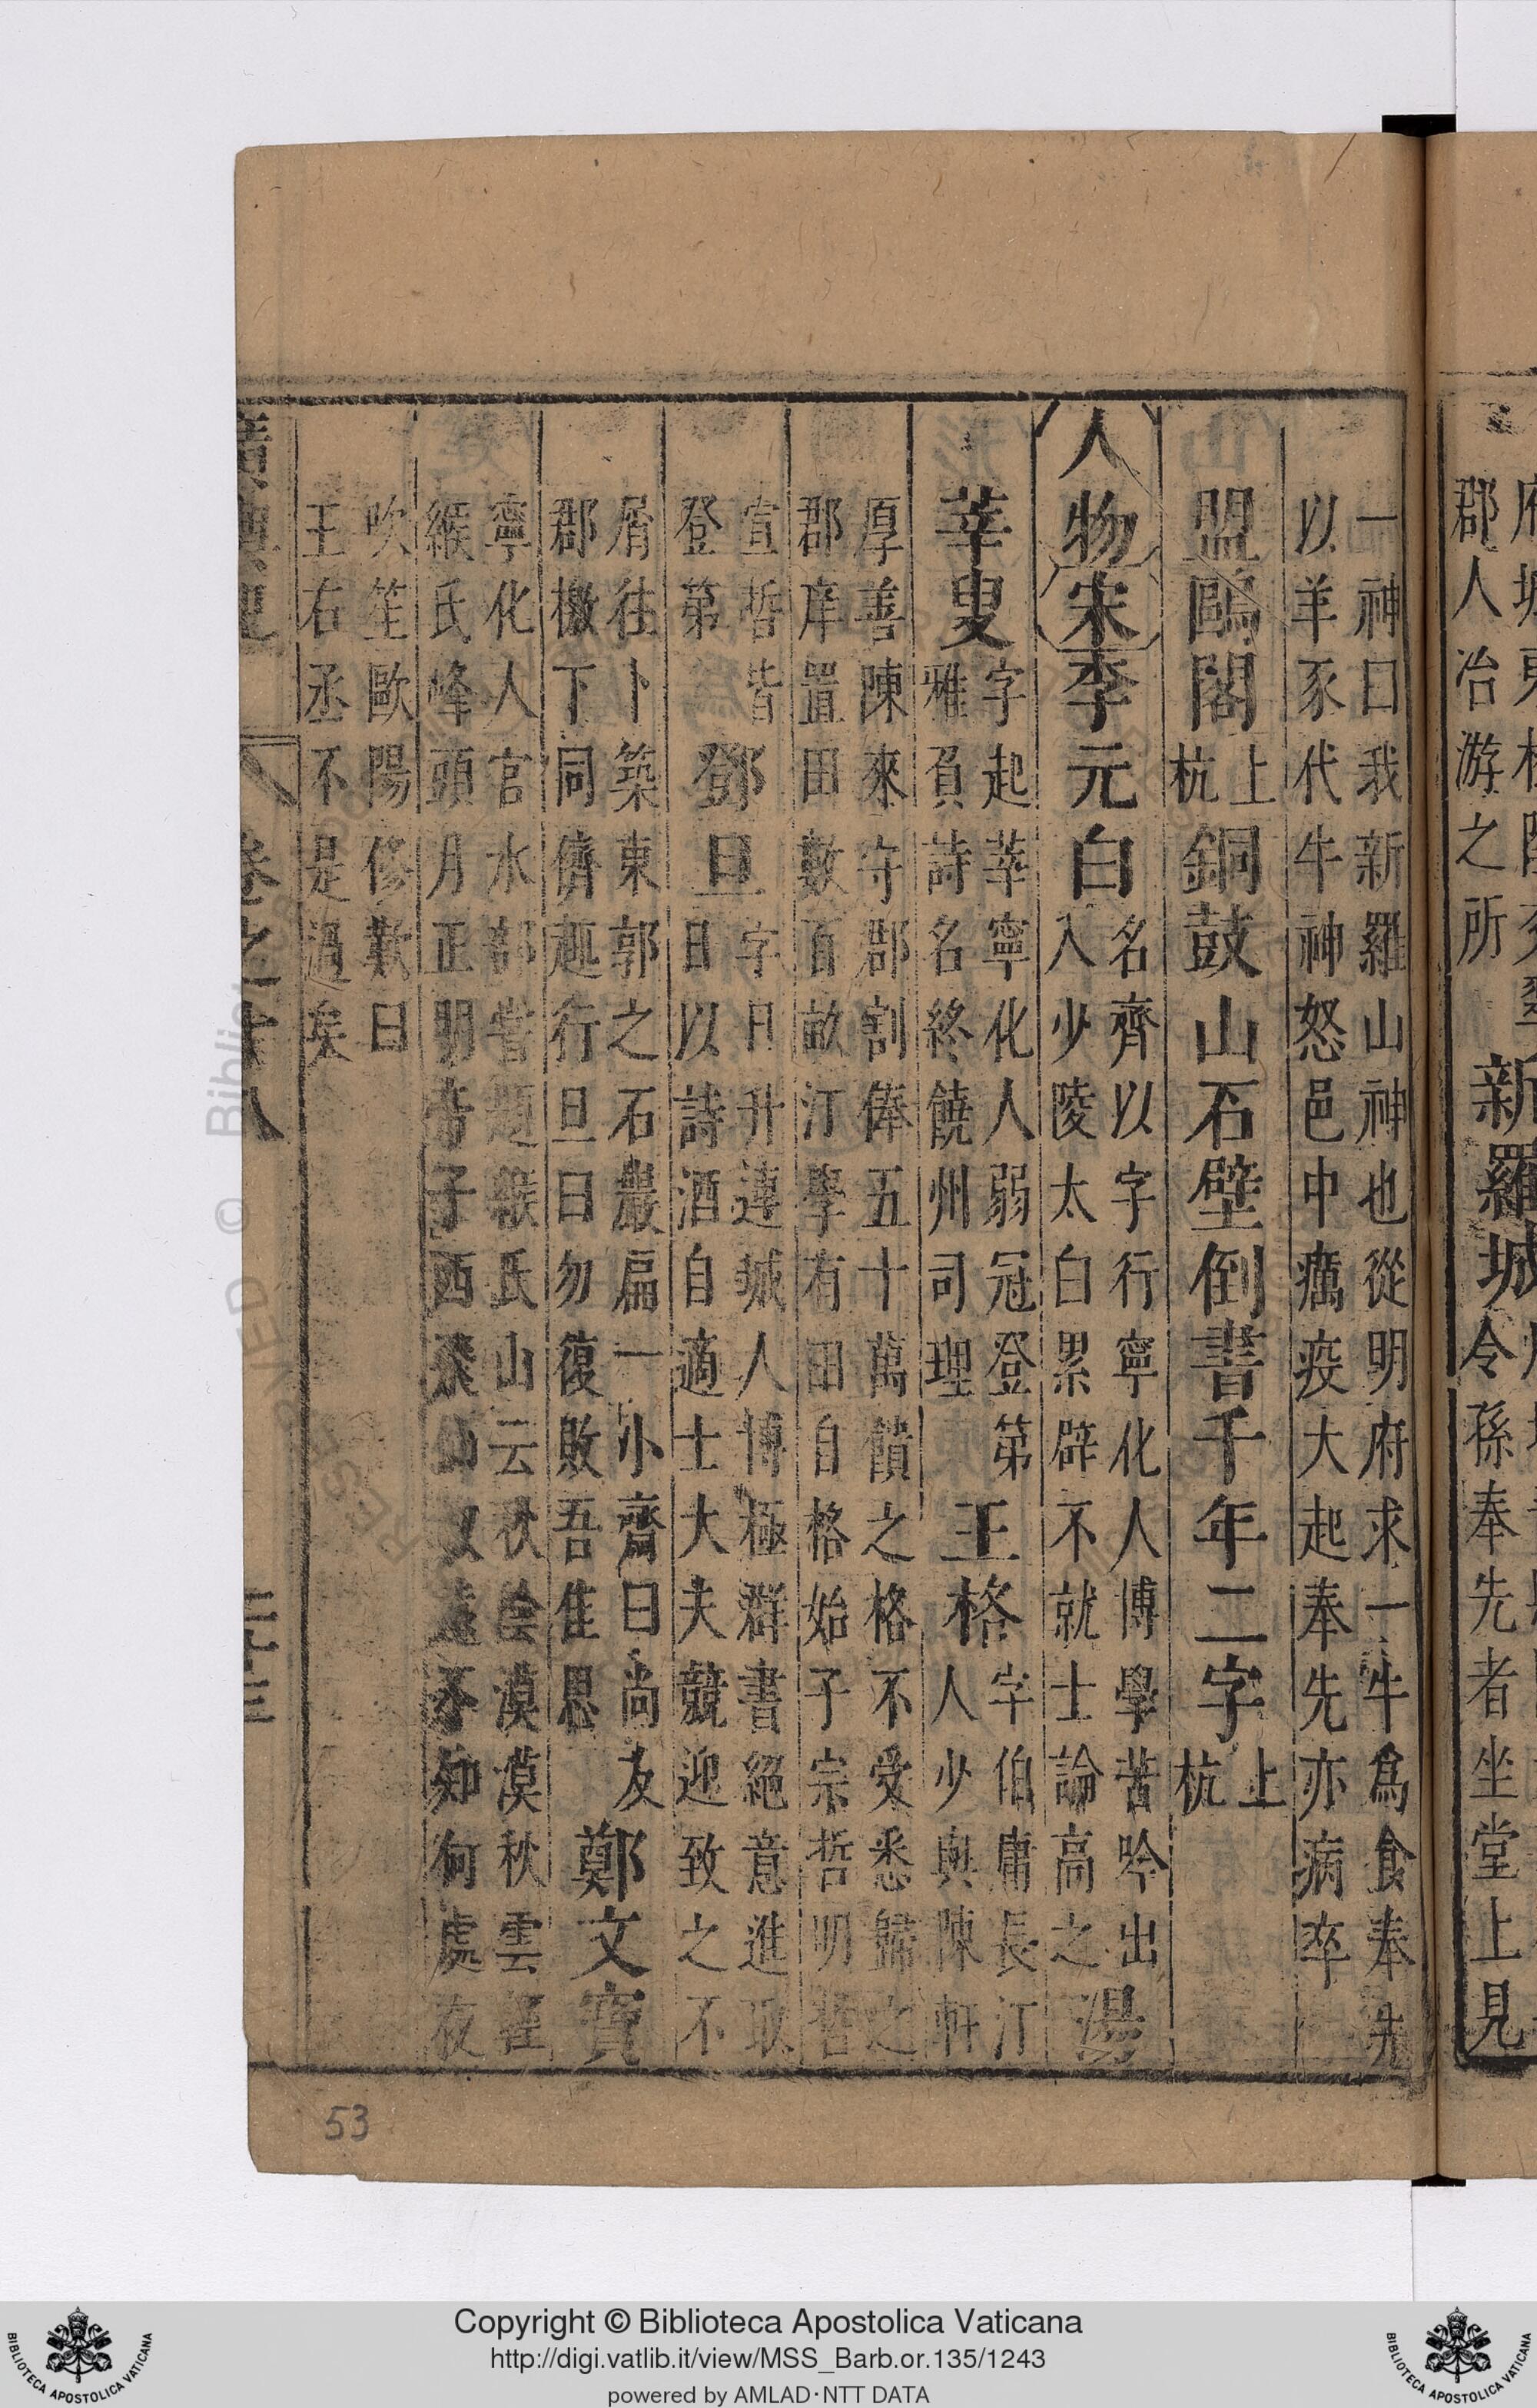 府城東
郡人冶游之所
新羅城
令孫奉先者坐堂上見
一神曰我新羅山神也從明府求一牛爲食奉先
以羊豕代牛神怒邑中癘疫大起奉先亦病卒
盟鷗閣
上
杭
銅鼓山石壁倒書千年二字
上
杭
人物宋李元白
名齊以字行寧化人博學苦吟出
入少陵太白累辟不就士論高之
湯
莘叟
字起莘寧化人弱冠登第
雅負詩名終饒州司理
王格
字伯庸長汀
人少與陳軒
厚善陳來守郡割俸五十萬饋之格不受悉歸之
郡庠置田數百畝汀學有田自格始子宗哲明哲
宣哲皆
登第
鄧旦
字日升蓮城人博極群書絕意進取
日以詩酒自適士大夫競迎致之不
屑往卜築東郭之石巖扁一小齋曰尚友
郡檄下同儕趣行旦曰勿復敗吾隹思
鄭文寶
寧化人官水部嘗題緱氏山云秋陰漠漠秋雲輕
緱氏峰頭月正明帝子西飛仙馭遠不知何處夜
吹笙歐陽修歎曰
王右丞不是過矣
廣輿記
卷之十八
Copyright © Biblioteca Apostolica Vaticana
http://digi.vatlib.it/view/MSS_Barb.or.135/1243
powered by AMLAD·NTT DATA
BIBLIOTECA APOSTOLICA VATICANA
BIBLIOTECA APOSTOLICA VATICANA
53